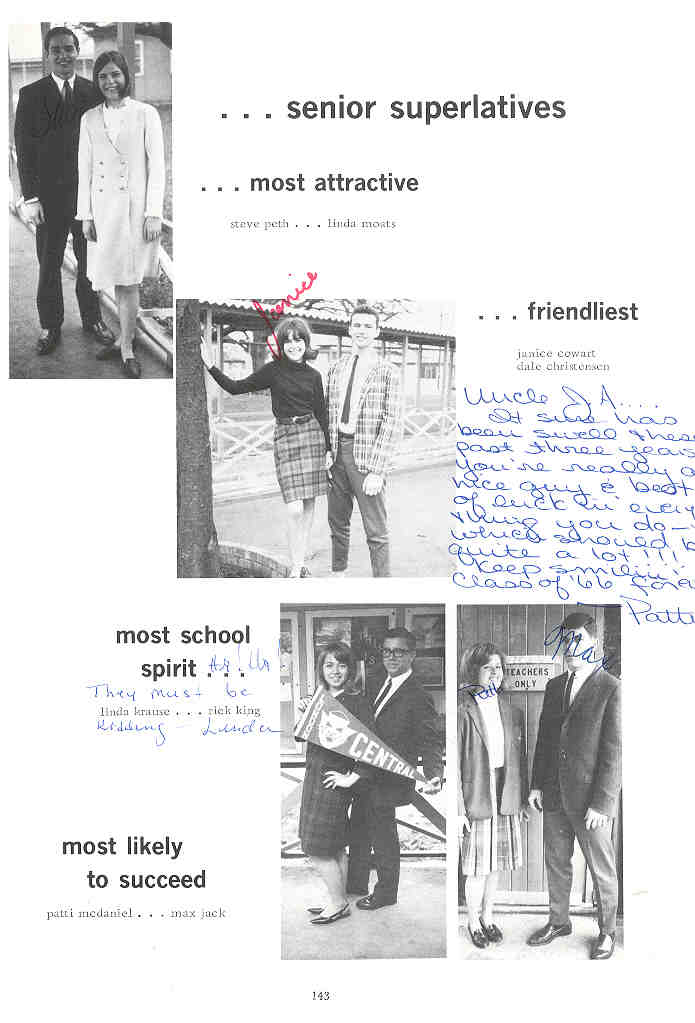 . . . senior superlatives
. . . most attractive
steve peth . . . linda moats
Janice
. . . friendliest
janice cowart
dale christensen
Uncle J.A....
It sure has
been swell these
past three years
You're really a
nice guy & best
of luck in every
thing you do—
which should b
quite a lot!!!
Keep smilin'
Class of '66 fore
Patti
most school
spirit . . .
Ha! Ha!
They must be
linda krause . . . rick king
Kidding — Linder
CENTRAL
TEACHERS
ONLY
Patti
Max
most likely
to succeed
patti mcdaniel . . . max jack
143